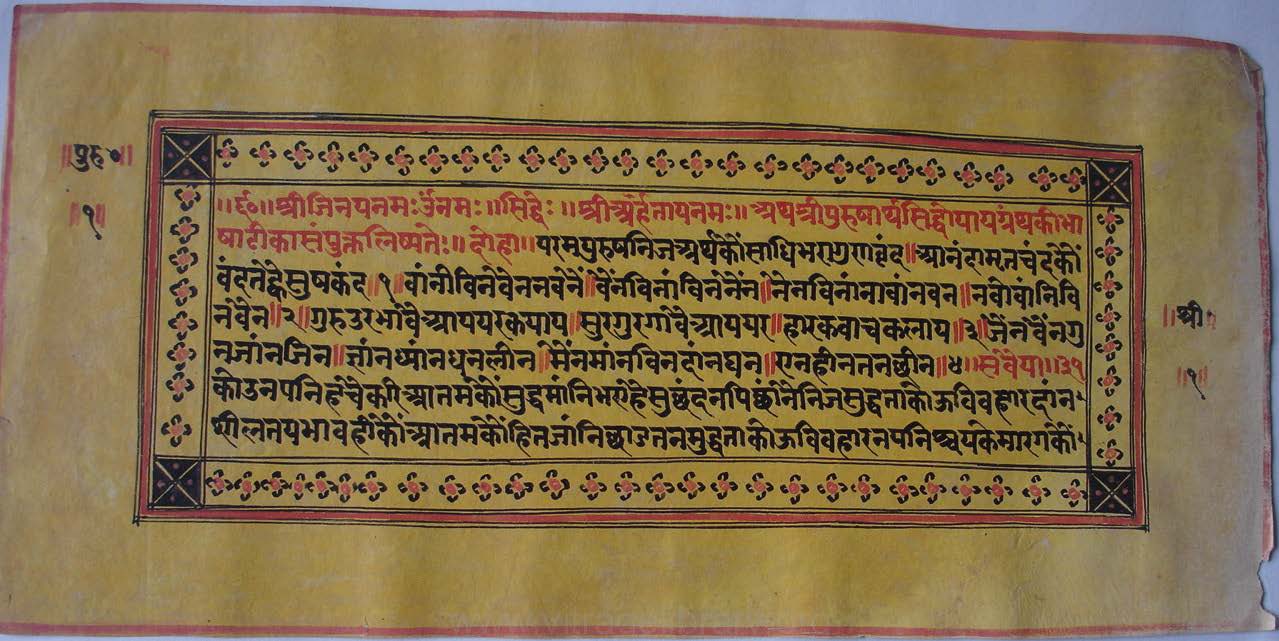 ॥पुरु०॥
॥१॥
॥६०॥श्रीजिनायनमःउंनमः॥सिद्धेः॥श्रीअर्हंनायनमः॥अथश्रीपुरुषार्थसिद्धोपायग्रंथकीभा
षाटीकासंयुक्तलिष्यतेः॥दोहा॥परमपुरुषनिजअर्थकौंसाधिभएगुणवृंद॥आनंदामृतचंदकौं
वंदतह्वैसुषकंद॥१॥वांनीविनवैननवनें॥वैंनविनांविननैंन॥नैनविनांनावांनवन॥नवौवांनिवि
नवैन॥२॥गुरुउरभावैआपपरकषाय॥सुरगुरगांवैआपपर॥हारकवाचकलाप॥३॥जैनवैंनगु
नजांनजिन॥ज्ञांनध्यांनधुनलीन॥मैंनमांनविनदांनघन॥एनहीनतनछीन॥४॥सवैया॥३१
कोउनयनिहचैकरिआतमकौंसुद्धमांनिभएहैसुछंदनपिछांनेंनिजसुद्धताकोऊविवहारदांन
शीलतपभावहीकौंआतमकौंहितजांनिछाउतनमुद्धताकोऊविवहारनयनिश्चयकेमारगकौं
॥श्री॥
॥१॥